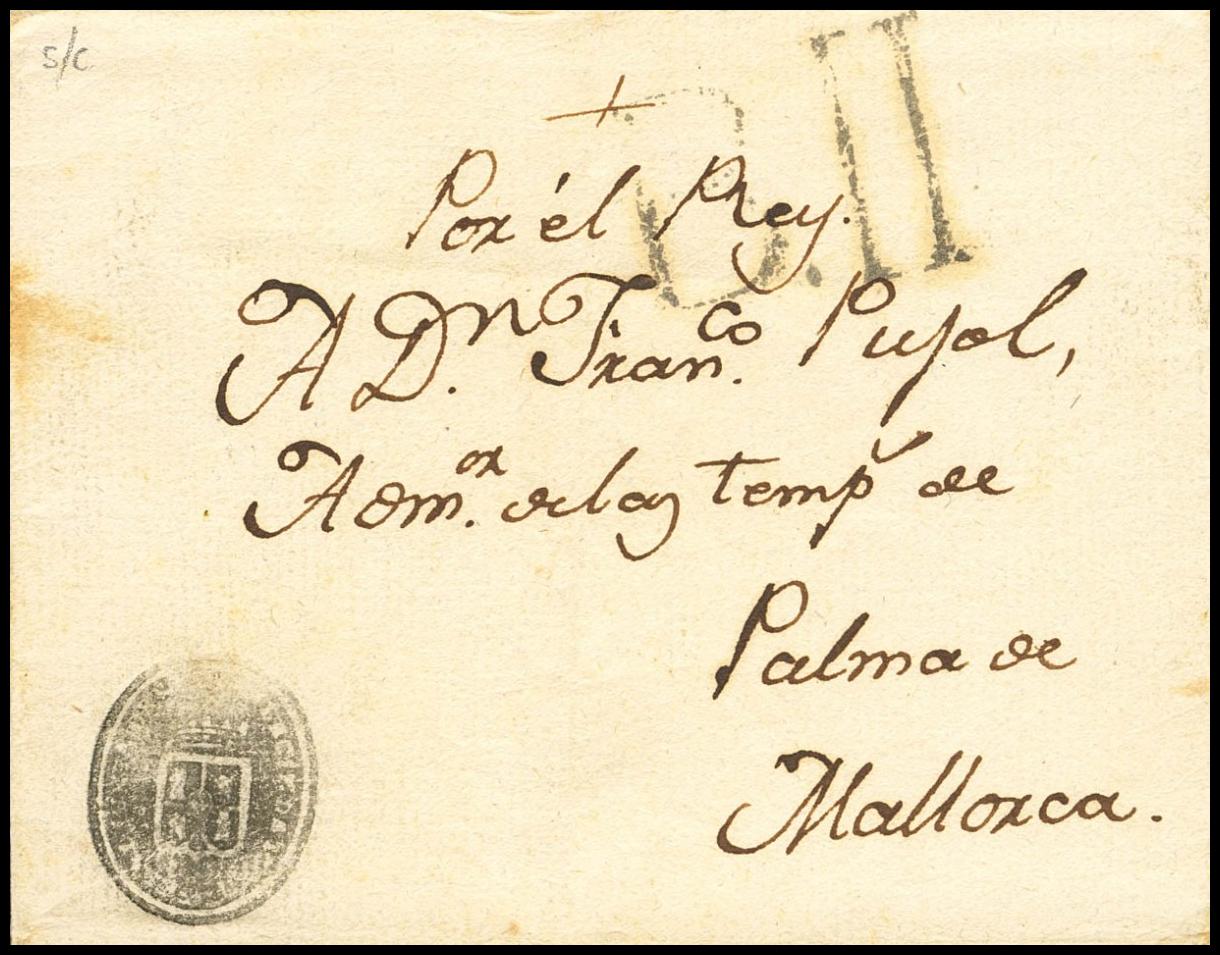 s/c
B.II
Por él Rey.
A Dn. Franco. Pujol,
Admor. de las temps de
Palma de
Mallorca.